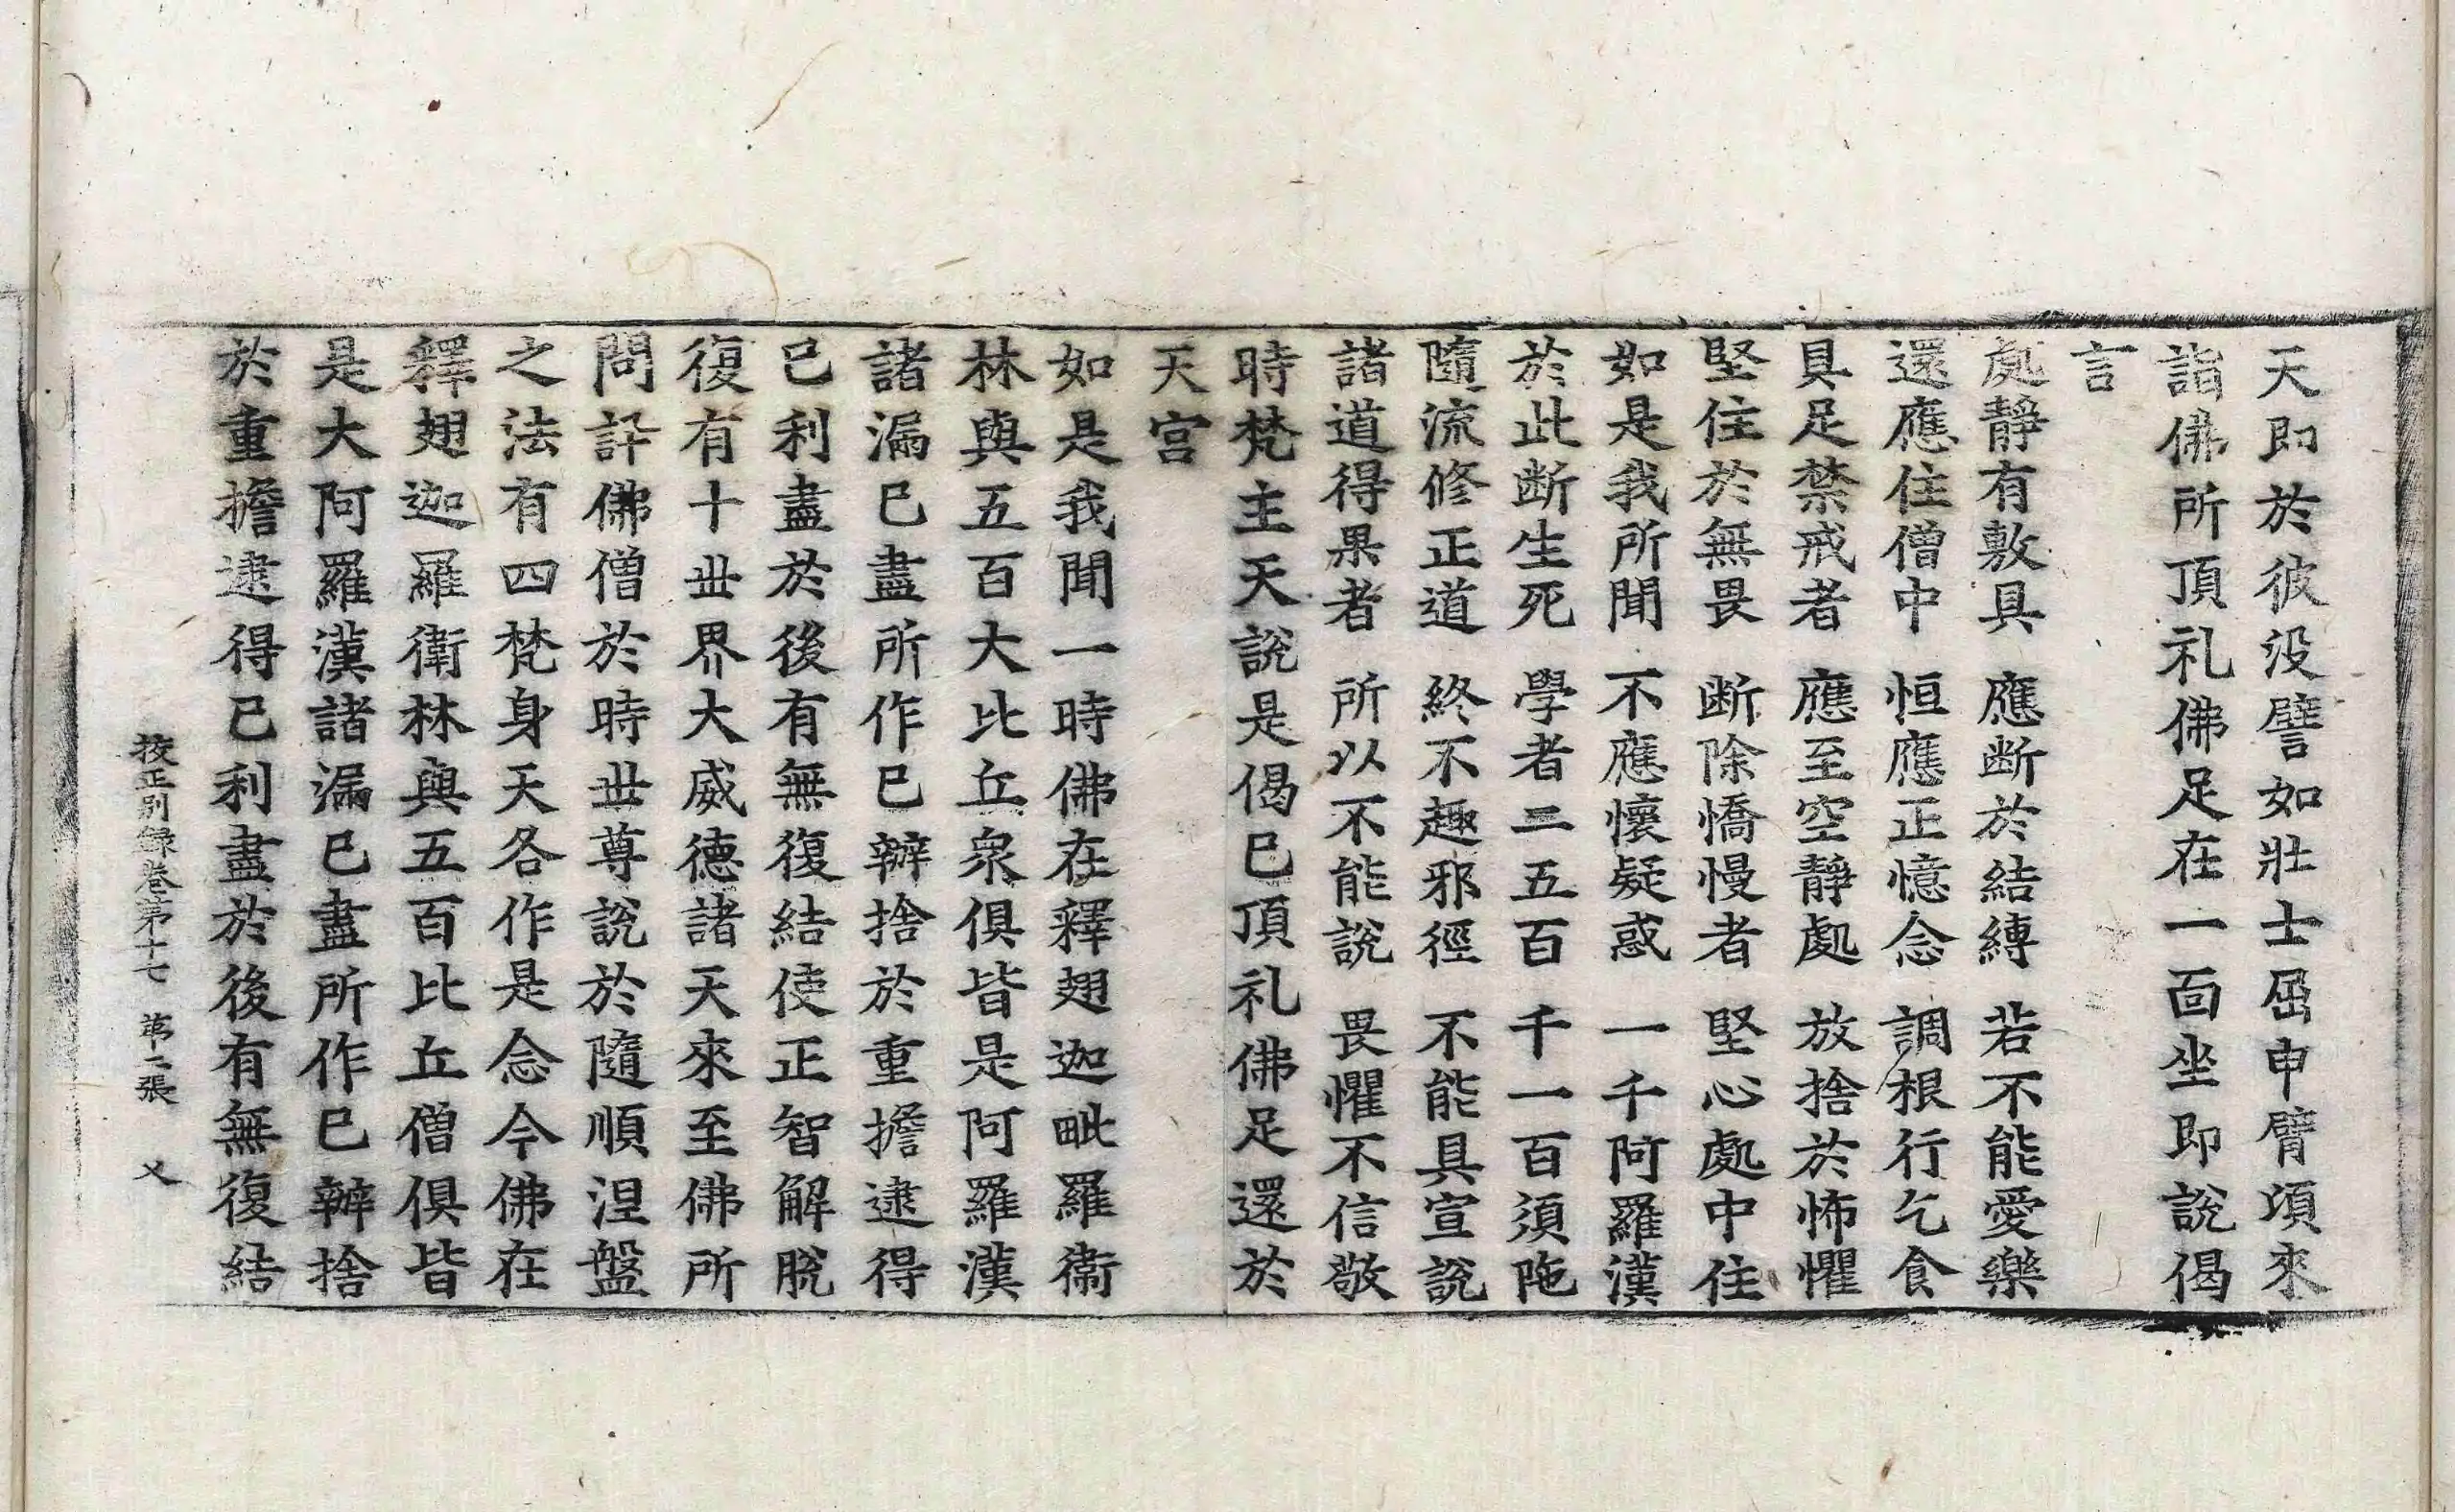 天即於彼没譬如壯士屈申臂頃來
詣佛所頂礼佛足在一面坐即說偈
言
處靜有敷具　應断於結縛　若不能愛樂
還應住僧中　恒應正憶念　調根行乞食
具足禁戒者　應至空靜處　放捨於怖懼
堅住於無畏　断除憍慢者　堅心處中住
如是我所聞　不應懷疑惑　一千阿羅漢
於此断生死　學者二五百　千一百須陁
隨流修正道　終不趣邪徑　不能具宣說
諸道得果者　所以不能說　畏懼不信敬
時梵主天說是偈已頂礼佛足還於
天宮
如是我聞一時佛在釋翅迦毗羅衛
林與五百大比丘衆俱皆是阿羅漢
諸漏已盡所作已辦捨於重擔逮得
已利盡於後有無復結使正智解脫
復有十世界大威德諸天來至佛所
問訊佛僧於時世尊說於隨順涅盤
之法有四梵身天各作是念今佛在
釋翅迦羅衛林與五百比丘僧俱皆
是大阿羅漢諸漏已盡所作已辦捨
於重擔逮得已利盡於後有無復結
挍正別錄卷第十七　第二張　乂